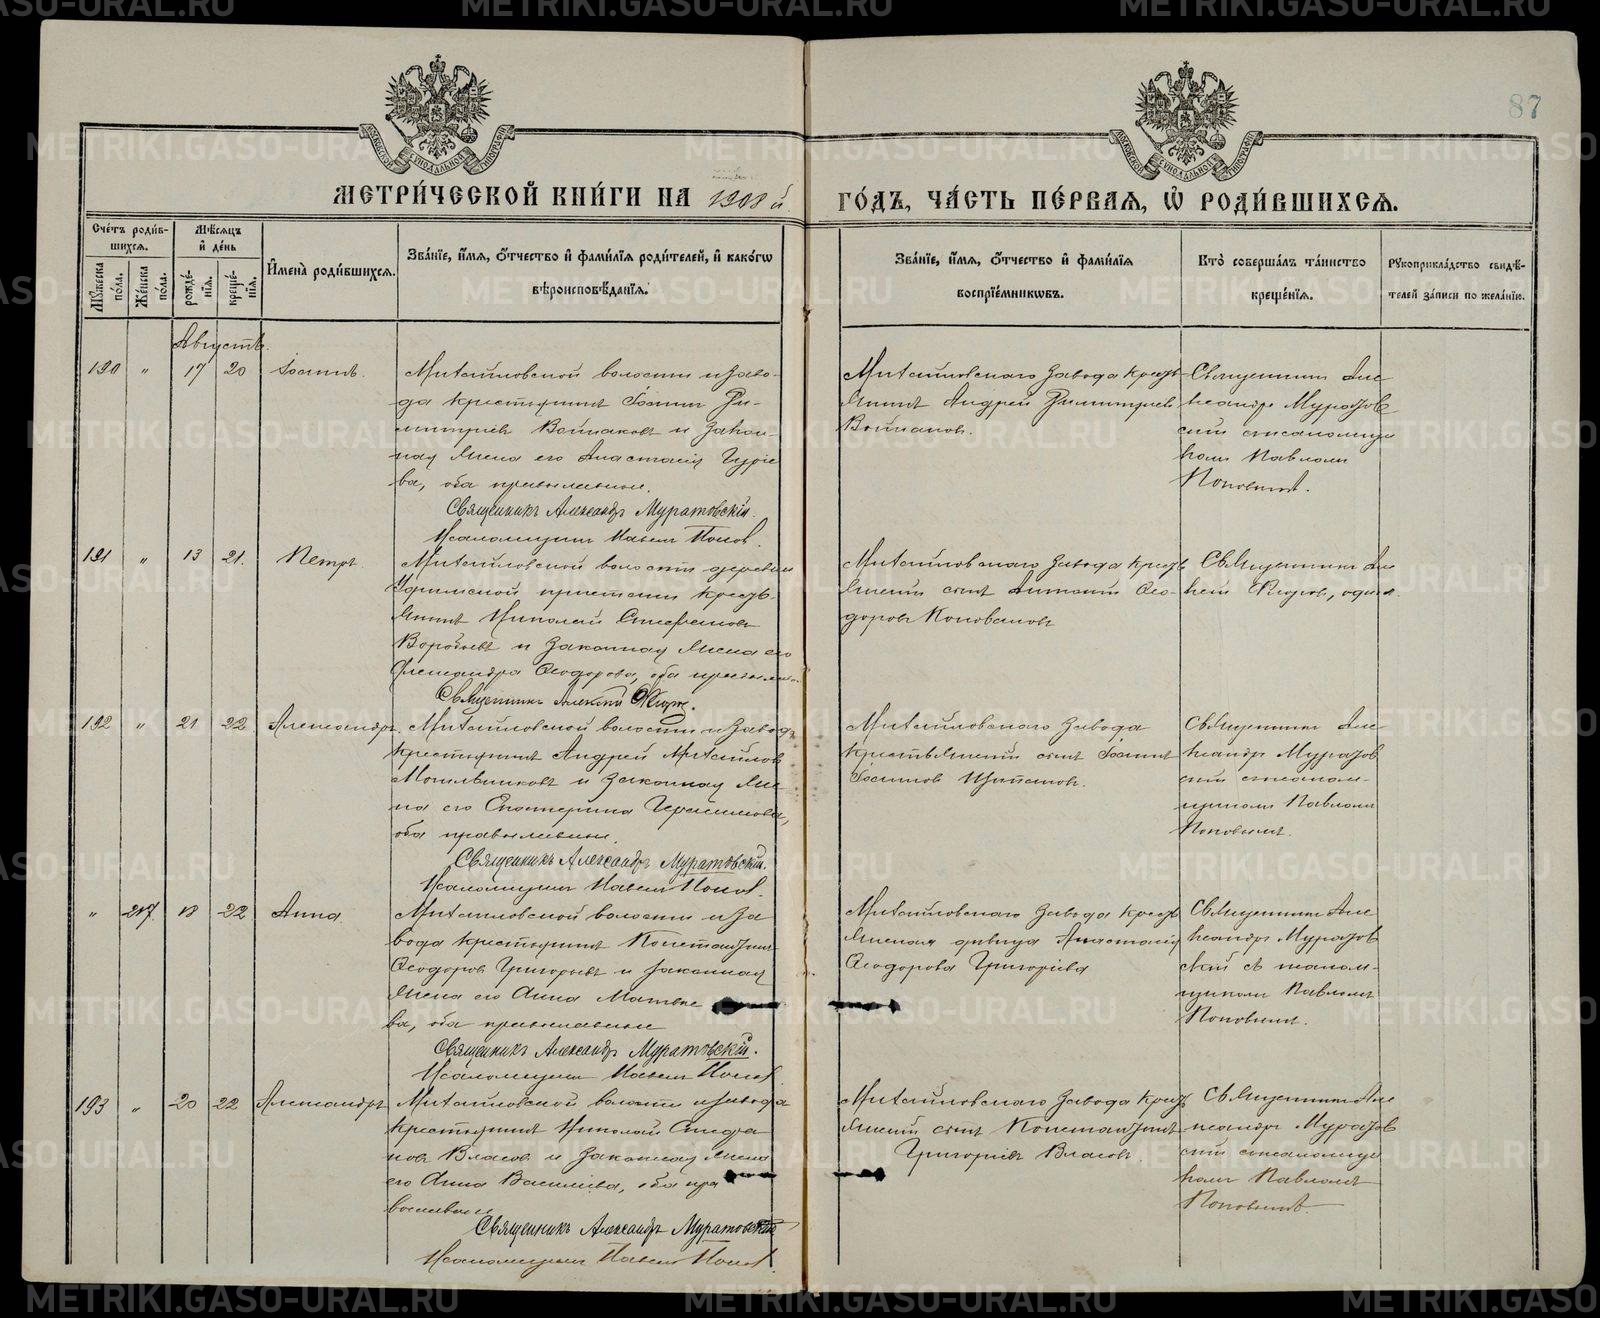 87
МЕТРИ́ЧЕСКОЙ КНИ́ГИ НА 1908 й
ГО́ДЪ, ЧА́СТЬ ПЕ́РВАЯ, Ѡ҆ РОДИ́ВШИХСЯ.
Сче́тъ роди́вшихся.
Му́жеска по́ла.
Же́нска по́ла.
Мѣ́сяцъ и҆ де́нь
рожде́нія.
креще́нія.
И҆мена̀ роди́вшихся.
Зва́ніе, и҆́мя, ѻ҆́тчество и҆ фами́лія роди́телей, и҆ како́гѡ
вѣроисповѣ́данія.
Зва́ніе, и҆́мя, ѻ҆́тчество и҆ фами́лія
воспріе́мникѡвъ.
Кто̀ соверша́лъ та́инство
креще́нія.
Рꙋкоприкла́дство свидѣ́телей за́писи по жела́нію.
Августъ.
190 " 17 20 Іоаннъ.
Михайловской волости и заво-
да крестьянинъ Іоаннъ Ди-
митріевъ Войнаковъ и закон-
ная жена его Анастасія Гурье
ва, оба православные.
Священникъ Александръ Муратовскій.
Псаломщикъ Павелъ Поповъ.
Михайловскаго завода кресть-
янинъ Андрей Димитріев
Священникъ Але
ксандръ Муратов
скій съ псаломщи
комъ Павломъ
Поповымъ.
191 " 13 21. Петръ.
Михайловской волости деревни
Уфимской пристани кресть-
янинъ Николай Стефановъ
Воробьевъ и законная жена его
Александра Ѳеодорова, оба православ.
Священникъ Алексій Флоровъ.
Михайловскаго завода кресть
янскій сынъ Антоній Ѳео-
доровъ Коноваловъ
Священникъ Але
ксій Флоровъ, одинъ.
192 " 21 22 Александръ.
Михайловской волости и завода
крестьянинъ Андрей Михайловъ
Могильниковъ и законная же-
на его Екатерина Герасимова,
оба православные.
Священникъ Александръ Муратовскій.
Псаломщикъ Павелъ Поповъ.
Михайловскаго завода
крестьянскій сынъ Іоаннъ
Іоанновъ Щипановъ.
Священникъ Але-
ксандръ Муратов
скій съ псалом-
щикомъ Павломъ
Поповымъ.
" 217 18 22 Анна.
Михайловской волости и за
вода крестьянинъ Константинъ
Ѳеодоровъ Григорьевъ и законная
жена его Анна Матвѣе
ва, оба православные
Священникъ Александръ Муратовскій.
Псаломщикъ Павелъ Поповъ
Михайловскаго завода кресть
янская дѣвица Анастасія
Ѳеодорова Григорьева
Священникъ Але
ксандръ Муратов
скій съ псалом-
щикомъ Павломъ
Поповымъ.
193 " 20 22 Александръ
Михайловской волости и завода
крестьянинъ Николай Стефа
новъ Власовъ и законная жена
его Анна Васильева, оба пра
вославные
Священникъ Александръ Муратовскій
Псаломщикъ Павелъ Поповъ.
Михайловскаго завода кресть
янскій сынъ Константинъ
Григорьевъ Власовъ.
Священникъ Але
ксандръ Муратов
скій съ псаломщи
комъ Павломъ
Поповымъ.
METRIKI.GASO-URAL.RU